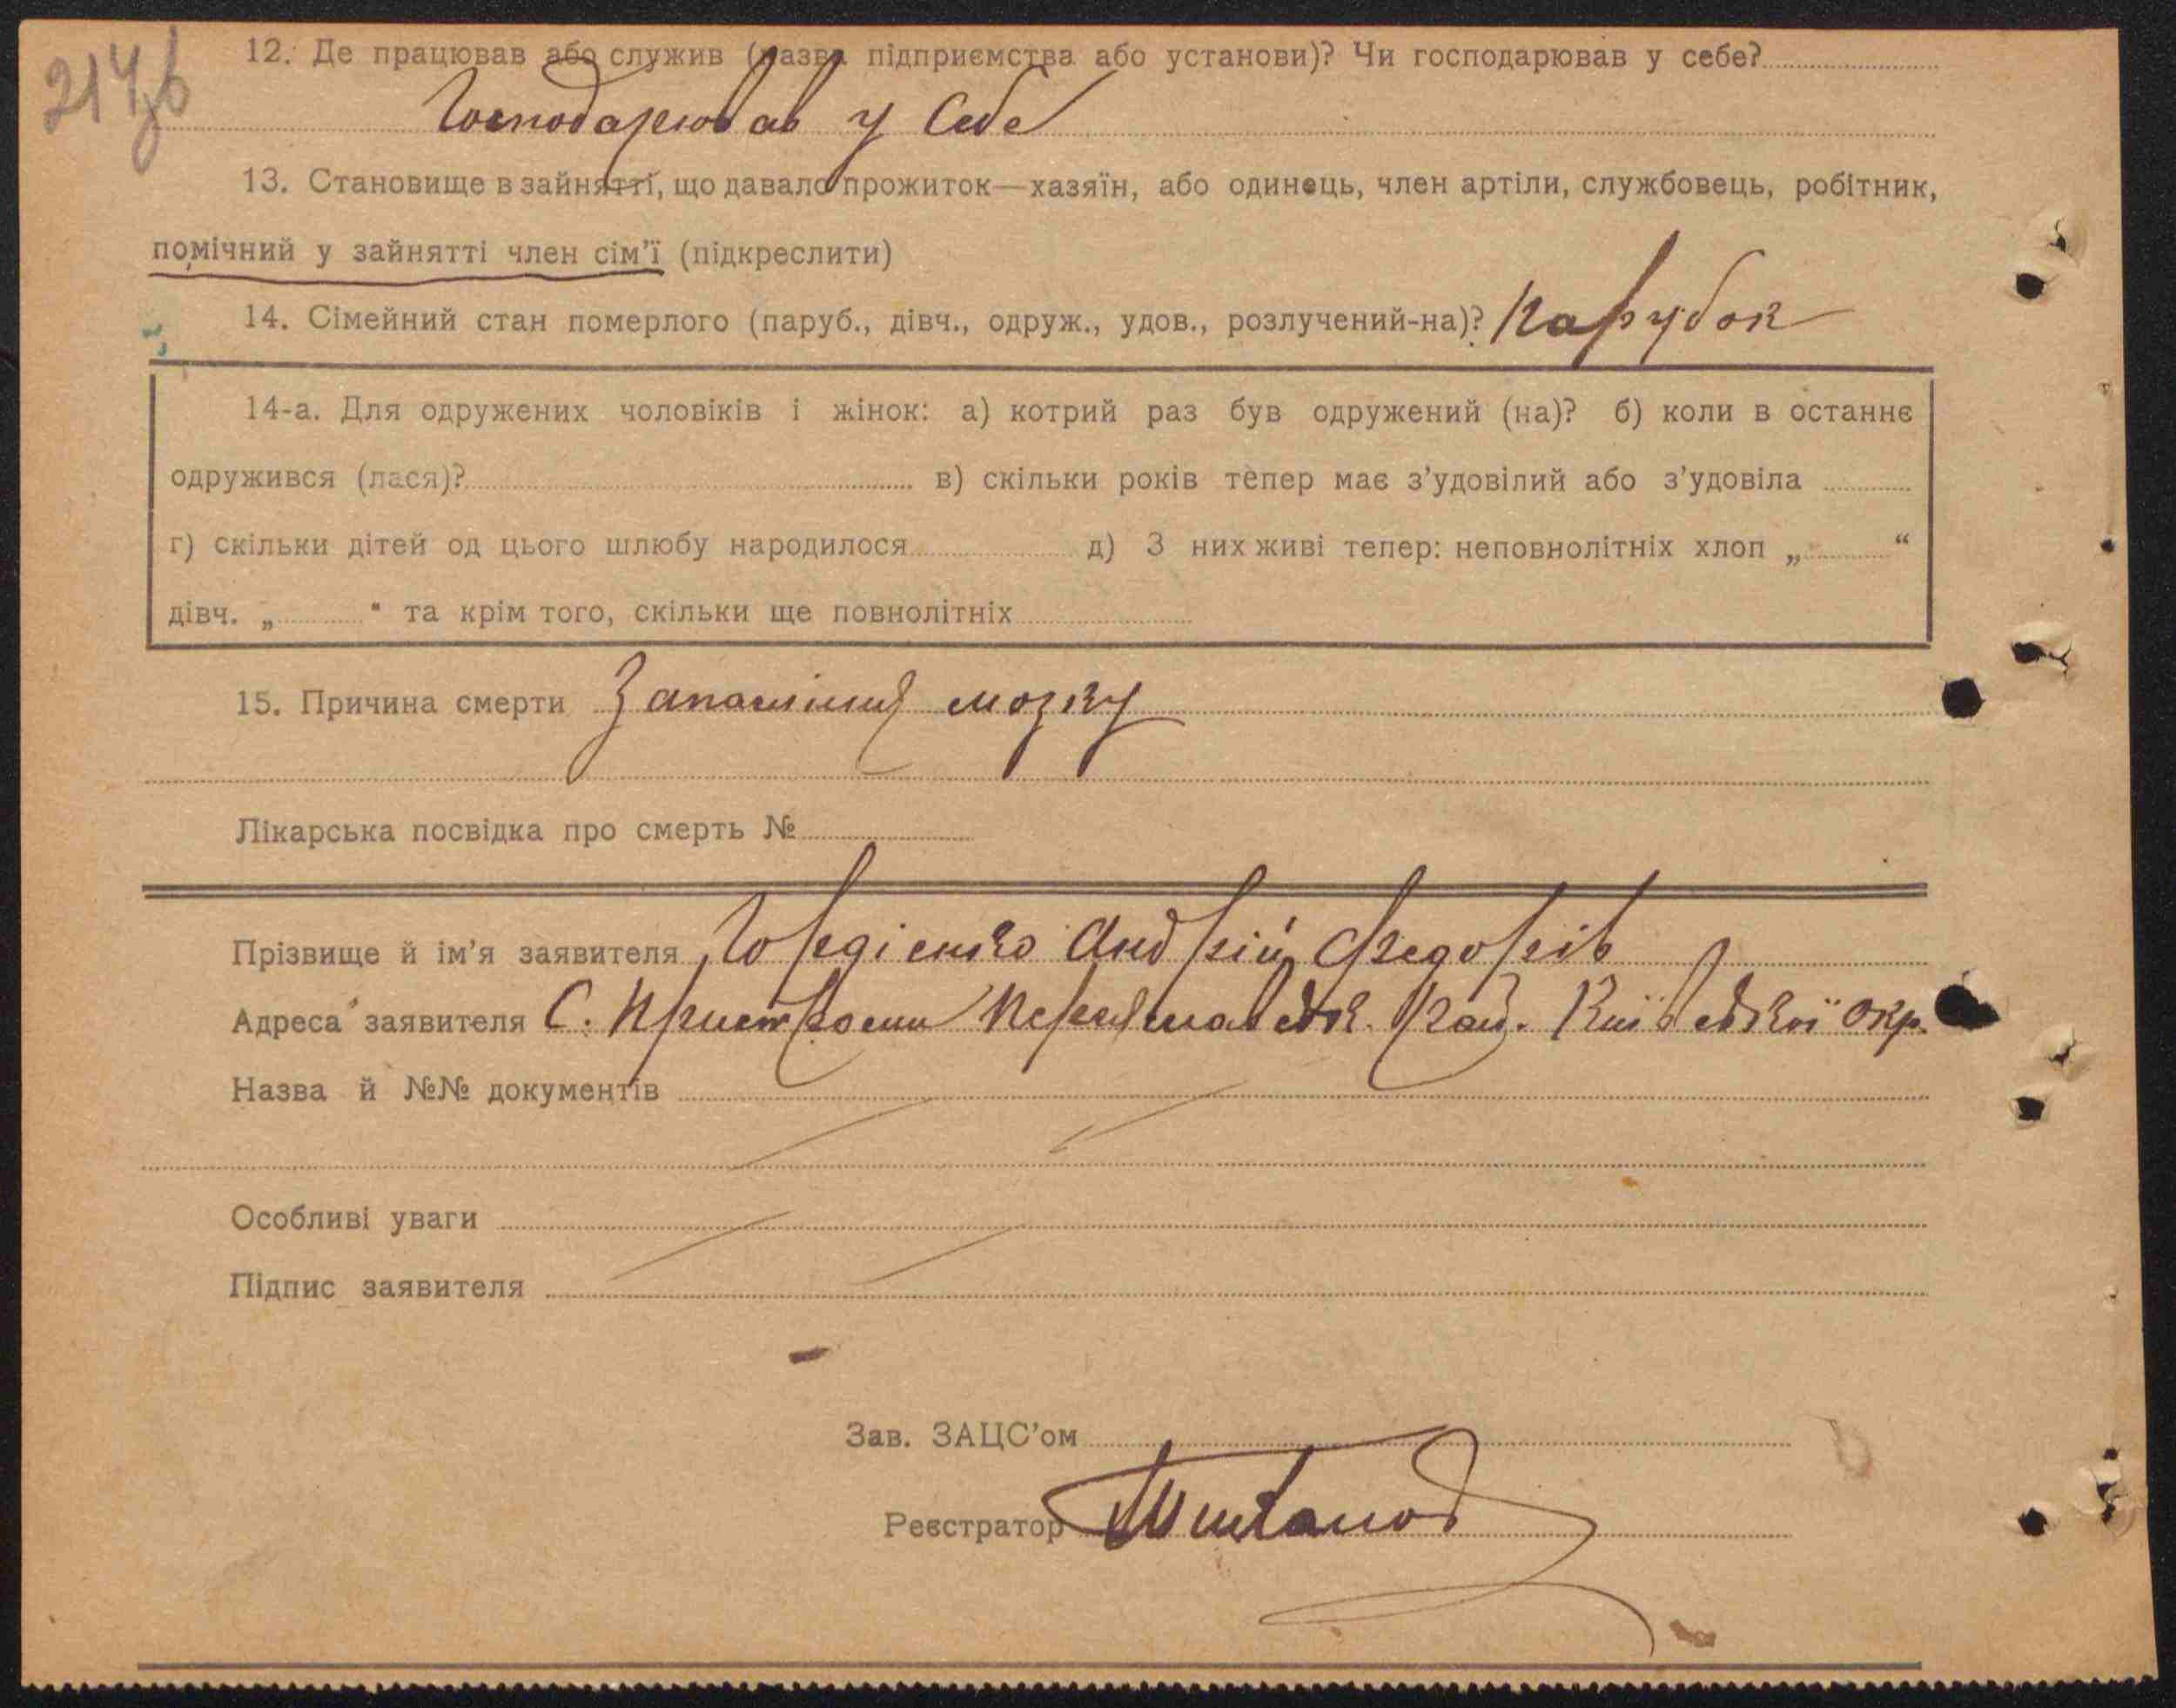 214зв
12. Де працював або служив (назва підприємства або установи)? Чи господарював у себе?
Господарював у себе
13. Становище в зайнятті, що давало прожиток—хазяїн, або одинець, член артіли, службовець, робітник,
помічний у зайнятті член сім'ї (підкреслити)
14. Сімейний стан померлого (паруб., дівч., одруж., удов., розлучений-на)? Парубок
14-а. Для одружених чоловіків і жінок: а) котрий раз був одружений (на)? б) коли в останнє
одружився (лася)? в) скільки років тепер має з'удовілий або з'удовіла
г) скільки дітей од цього шлюбу народилося д) З них живі тепер: неповнолітніх хлоп „ “
дівч. „ “ та крім того, скільки ще повнолітніх
15. Причина смерти Запаління мозку
Лікарська посвідка про смерть №
Прізвище й ім'я заявителя Гордієнко Андрій Федорів
Адреса заявителя С. Пристроми Переяславськ. Рай. Київської Окр.
Назва й №№ документів
Особливі уваги
Підпис заявителя
Зав. ЗАЦС'ом
Реєстратор